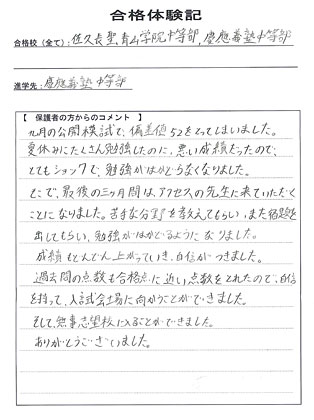 合格体験記
合格校（全て）：佐久長聖、青山学院中等部、慶應義塾中等部
進学先：慶應義塾中等部
【 保護者の方からのコメント 】
九月の公開模試で、偏差値52をとってしまいました。
夏休みにたくさん勉強したのに、悪い成績だったので、
とてもショックで、勉強がはかどらなくなりました。
そこで、最後の三ヶ月間は、アクセスの先生に来ていただく
ことになりました。苦手な分野を教えてもらい、また宿題を
出してもらい、勉強がはかどるようになりました。
成績もどんどん上がっていき、自信がつきました。
過去問の点数も合格点に近い点数をとれたので、自信
を持って、入試会場に向かうことができました。
そして、無事志望校に入ることができました。
ありがとうございました。